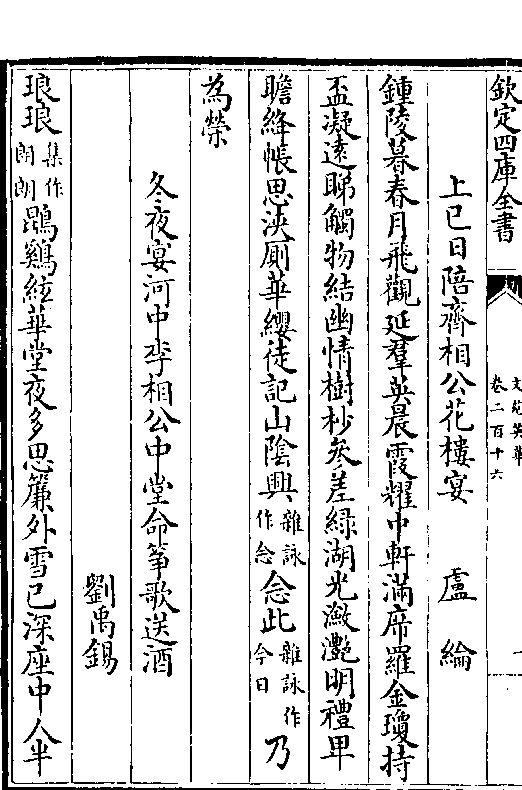 欽定四庫全書
文苑英華
卷二百十六
上巳日陪齊相公花樓宴　盧綸
鍾陵暮春月飛觀延羣英晨霞耀中軒滿席羅金瓊持
盃凝遠睇觸物結幽情樹杪叅差緑湖光潋灔明禮卑
瞻絳帳思浹厠華纓徒記山隂興雜詠作念念此雜詠作今日乃
為榮
冬夜宴河中李相公中堂命筝歌送酒
劉禹錫
琅琅集作朗朗鵾鷄絃華堂夜多思簾外雪已深座中人半